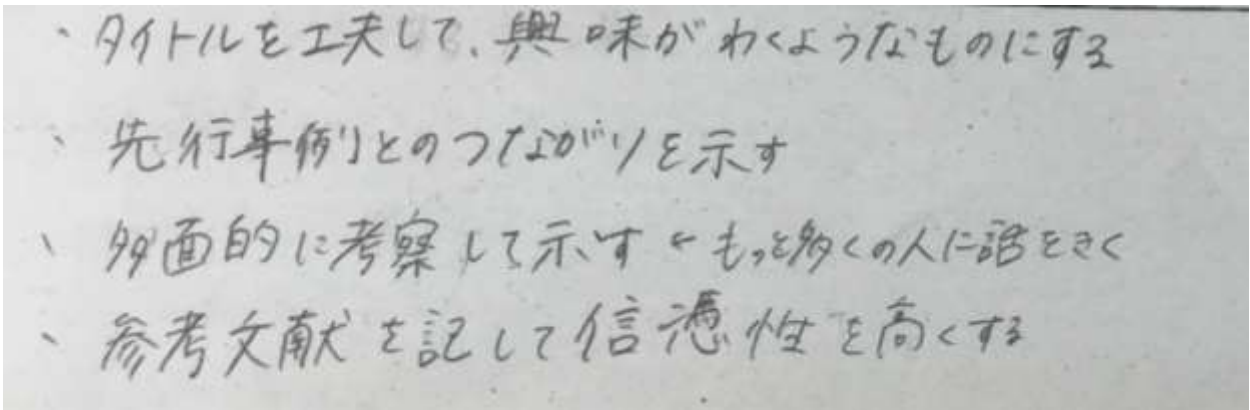 ・タイトルを工夫して、興味がわくようなものにする
・先行事例とのつながりを示す
・多面的に考察して示す←もっと多くの人に話をきく
・参考文献を記して信憑性を高くする